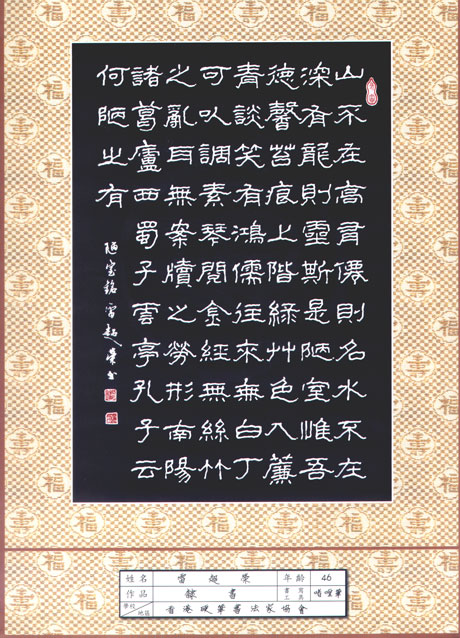 山不在高有僊則名水不在
深有龍則靈斯是陋室惟吾
德馨苔痕上階綠艸色入簾
青談笑有鴻儒往來無白丁
可以調素琴閱金經無絲竹
之亂耳無案牘之勞形南陽
諸葛廬西蜀子雲亭孔子云
何陋之有
陋室銘 雷超榮書
姓名 雷超榮 年齡 46
作品 隸書 書寫工具 啫喱筆
學校/地區 香港硬筆書法家協會